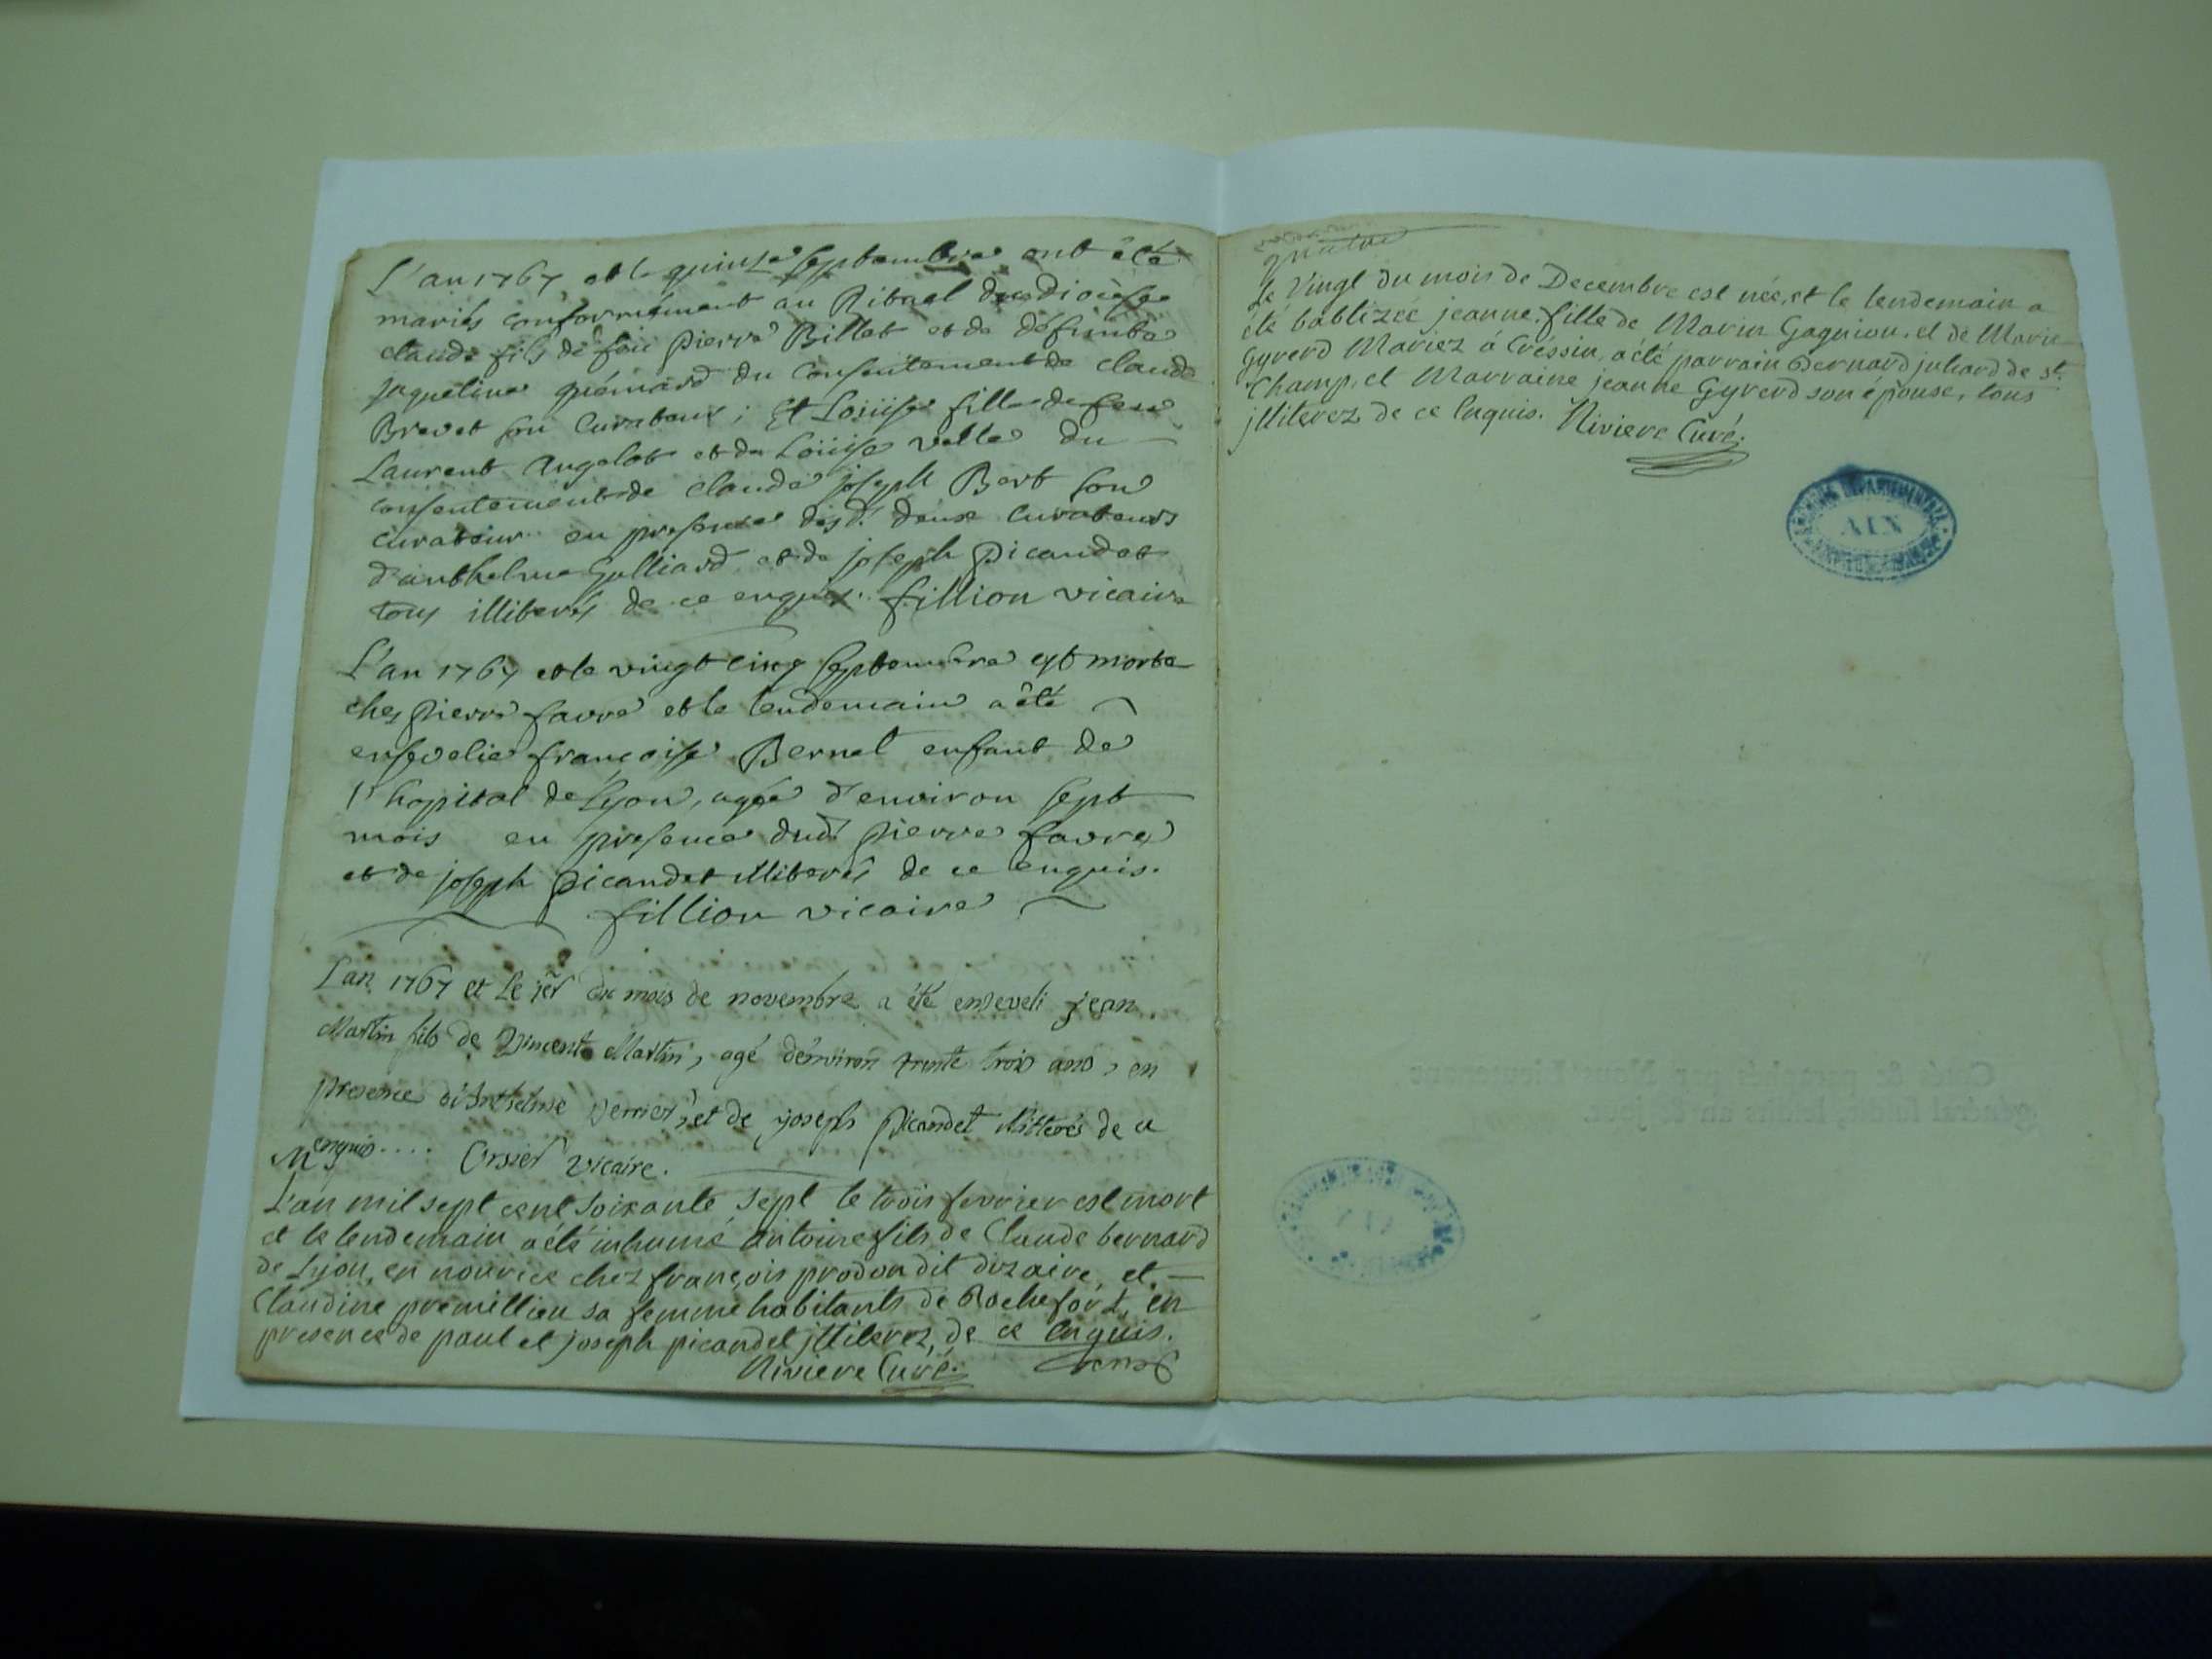 L'an 1767 et le quinze septembre ont été
mariés conformément au Rituel du Diocèse
claude fils de feu pierre Billet et de défunte
jaqueline guémard du consentement de claude
Brevet son curateur ; Et Loüise fille de feu
Laurent Angelot et de Loüise velle du
consentement de claude joseph Bert son
curateur en presence desd. deux curateurs
d'anthelme Gulliard et de joseph Picandet
tous illiterés de ce enquis. fillion vicaire
L'an 1767 et le vingt cinq septembre est morte
chez pierre favre et le lendemain a été
ensevelie françoise Bernet enfant de
l'hopital de Lyon, agée d'environ sept
mois en presence dud. pierre favre
et de joseph Picandet illiterés de ce enquis.
fillion vicaire
L'an 1767 et Le 1er du mois de novembre a été enseveli jean
Martin fils de Vincent Martin, agé d'environ trente trois ans, en
presence d'Anthelme verrier, et de joseph picandet illiterés de ce
enquis.... Orsier vicaire.
L'an mil sept cent soixante sept le trois fevrier est mort
et le lendemain a été inhumé antoine fils de Claude bernard
de Lyon, en nourice chez françois prodon dit dizaire, et
Claudine premillieu sa femme habitants de Rochefort, en
presence de paul et joseph picandet jlliterez, de ce Enquis.
Riviere Curé.
quatre
Le Vingt du mois de Decembre est née, et le lendemain a
été babtizée jeanne fille de Marin Gagnion, et de Marie
Gyrerd Mariez à Créssin, a été parrain Bernard juliard de st.
Champ, et Marraine jeanne Gyrerd son épouse, tous
jlliterez de ce Enquis. Riviere Curé.
AIN